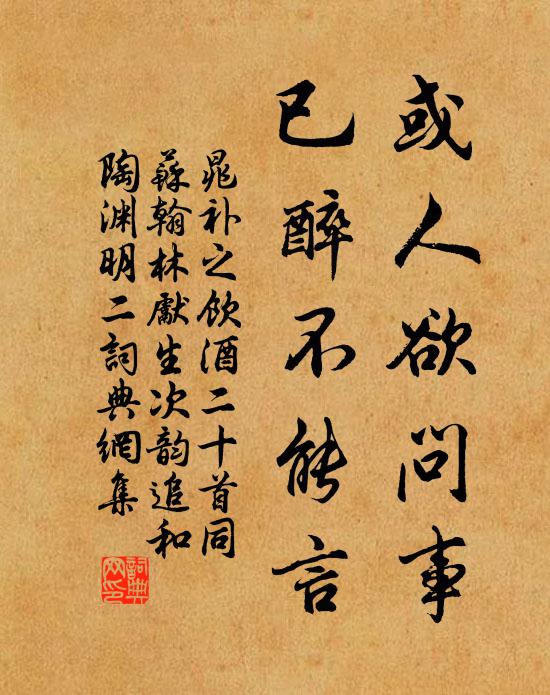 或人欲问事
已醉不能言
晁补之饮酒二十首同
苏翰林献生次韵追和
陶渊明二词典网集
词典网印